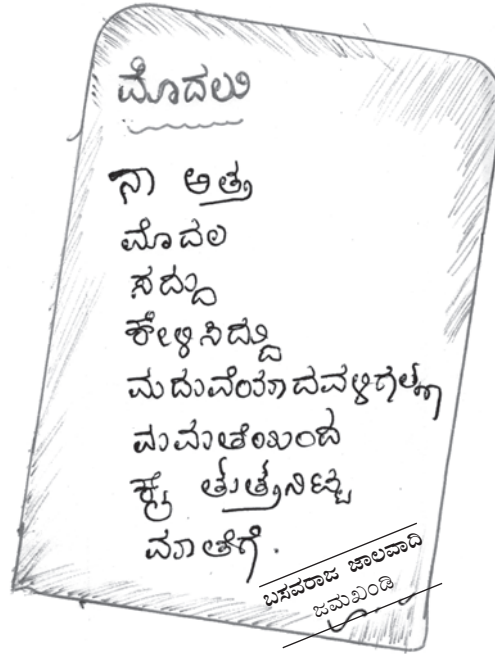 ಮೊದಲು
ನಾ ಅತ್ತ
ಮೊದಲ
ಸದ್ದು
ಕೇಳಿಸಿದ್ದು
ಮದುವೆಯಾದವಳಿಗಲ್ಲಾ
ಮಮತೆಯಿಂದ
ಕೈ ತುತ್ತನಿಟ್ಟ
ಮಾತೆಗೆ.
ಬಸವರಾಜ ಜಾಲವಾದಿ
ಜಮಖಂಡಿ